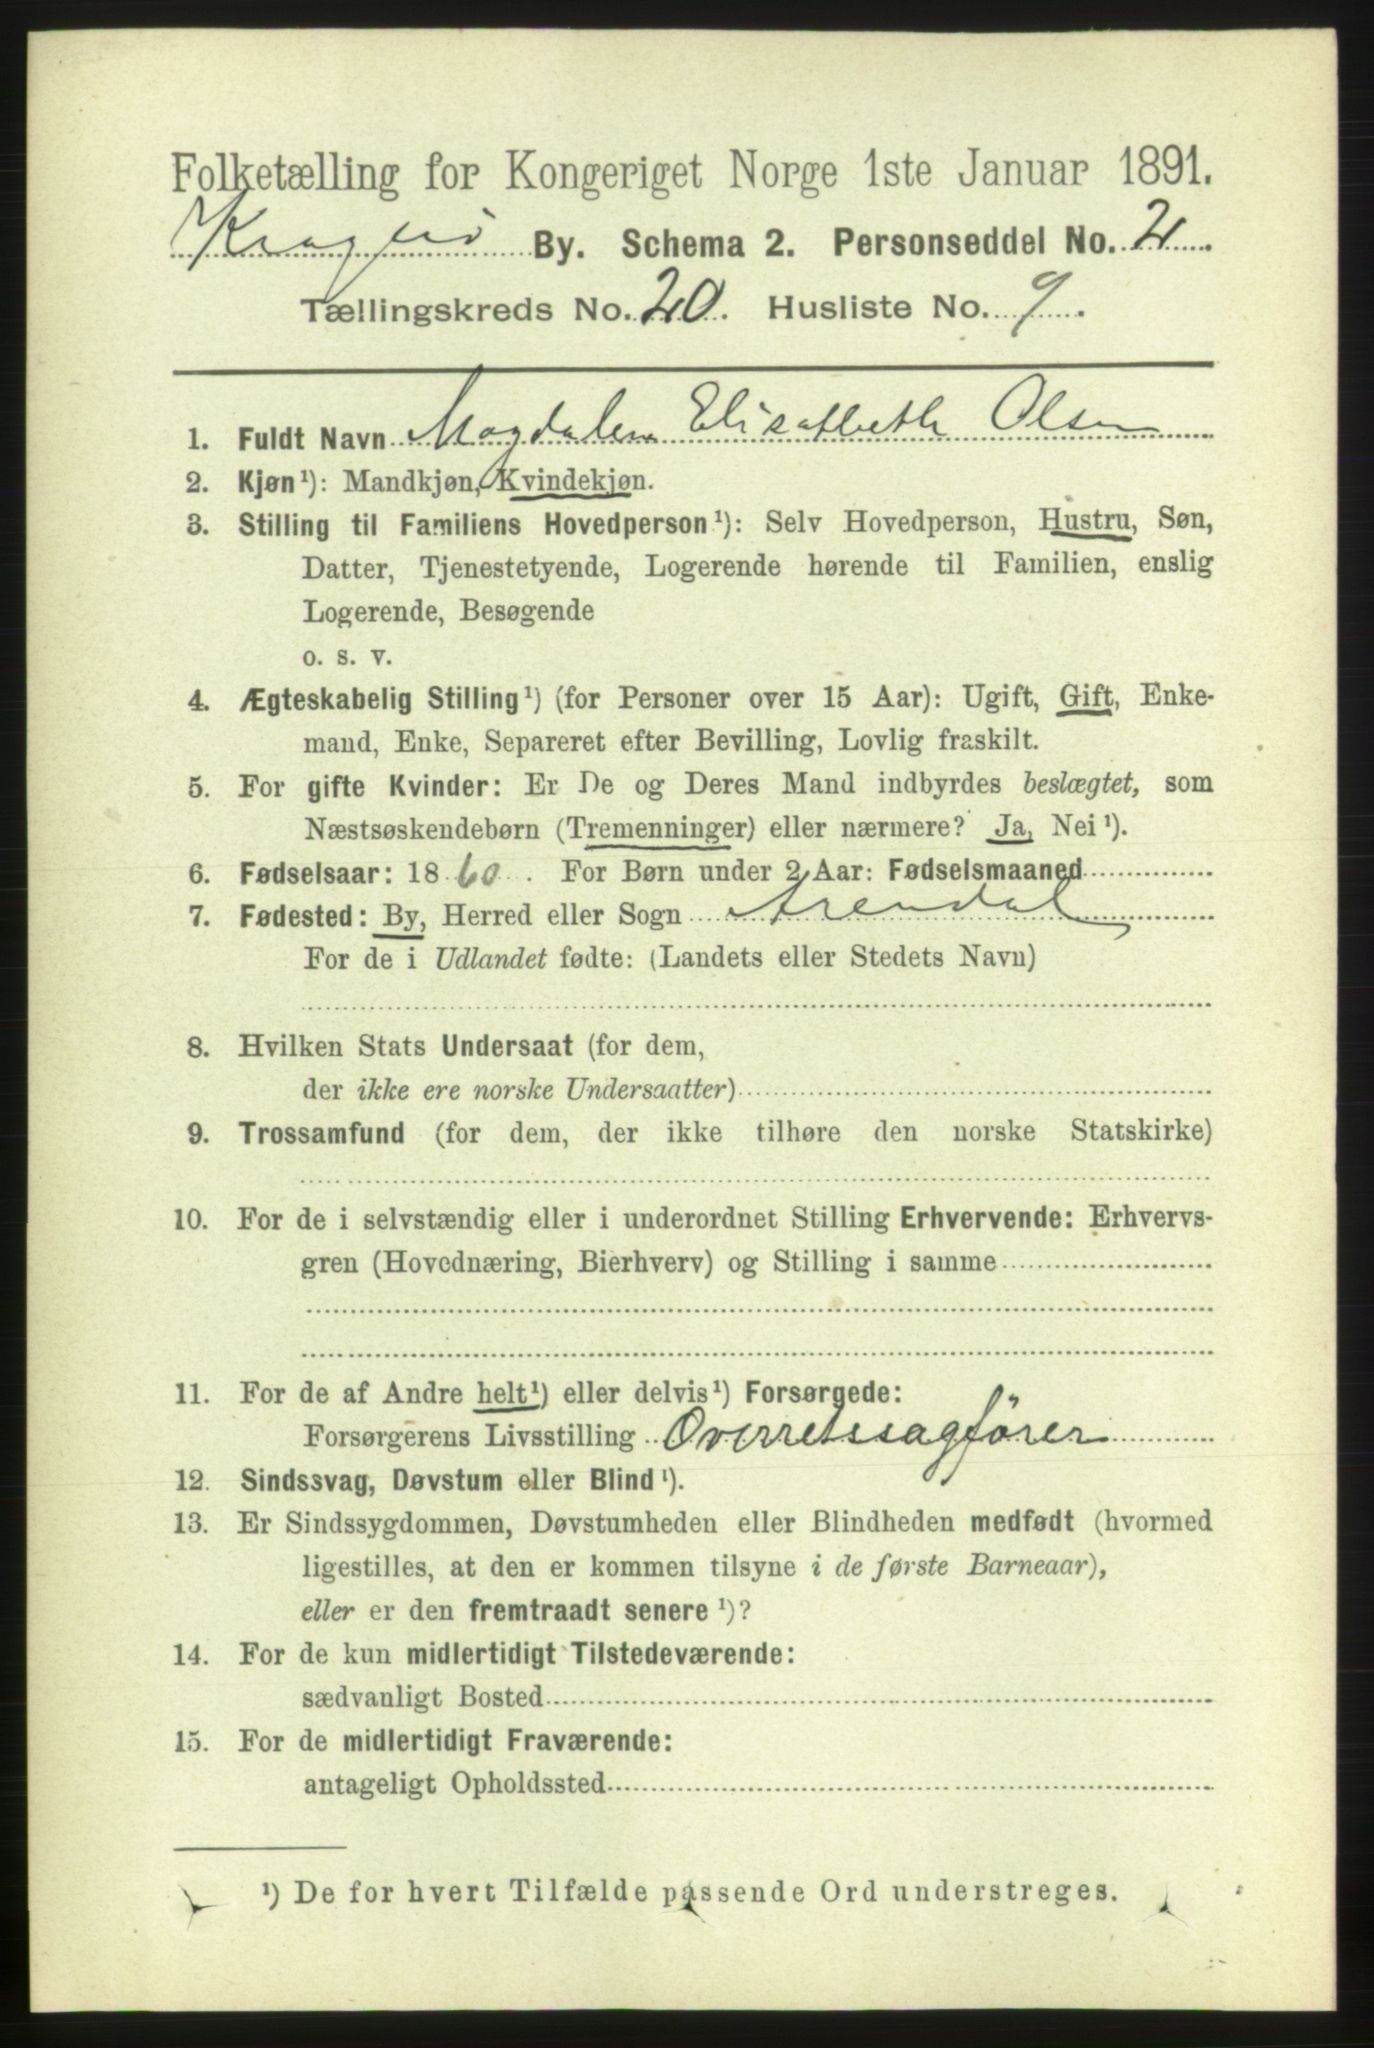 Folketælling for Kongeriget Norge 1ste Januar 1891.
Kragerø By. Schema 2. Personseddel No. 2.
Tællingskreds No. 20. Husliste No. 9.
1. Fuldt Navn Magdalena Elisabeth Olsen
2. Kjøn¹): Mandkjøn, Kvindekjøn.
3. Stilling til Familiens Hovedperson¹): Selv Hovedperson, Hustru, Søn,
Datter, Tjenestetyende, Logerende hørende til Familien, enslig
Logerende, Besøgende
o. s. v.
4. Ægteskabelig Stilling¹) (for Personer over 15 Aar): Ugift, Gift, Enke-
mand, Enke, Separeret efter Bevilling, Lovlig fraskilt.
5. For gifte Kvinder: Er De og Deres Mand indbyrdes beslægtet, som
Næstsøskendebørn (Tremenninger) eller nærmere? Ja, Nei¹).
6. Fødselsaar: 1860. For Børn under 2 Aar: Fødselsmaaned
7. Fødested: By, Herred eller Sogn Arendal
For de i Udlandet fødte: (Landets eller Stedets Navn)
8. Hvilken Stats Undersaat (for dem,
der ikke ere norske Undersaatter)
9. Trossamfund (for dem, der ikke tilhøre den norske Statskirke)
10. For de i selvstændig eller i underordnet Stilling Erhvervende: Erhvervs-
gren (Hovednæring, Bierhverv) og Stilling i samme
11. For de af Andre helt¹) eller delvis¹) Forsørgede:
Forsørgerens Livsstilling Overretssagfører
12. Sindssvag, Døvstum eller Blind¹).
13. Er Sindssygdommen, Døvstumheden eller Blindheden medfødt (hvormed
ligestilles, at den er kommen tilsyne i de første Barneaar),
eller er den fremtraadt senere¹)?
14. For de kun midlertidigt Tilstedeværende:
sædvanligt Bosted
15. For de midlertidigt Fraværende:
antageligt Opholdssted
¹) De for hvert Tilfælde passende Ord understreges.